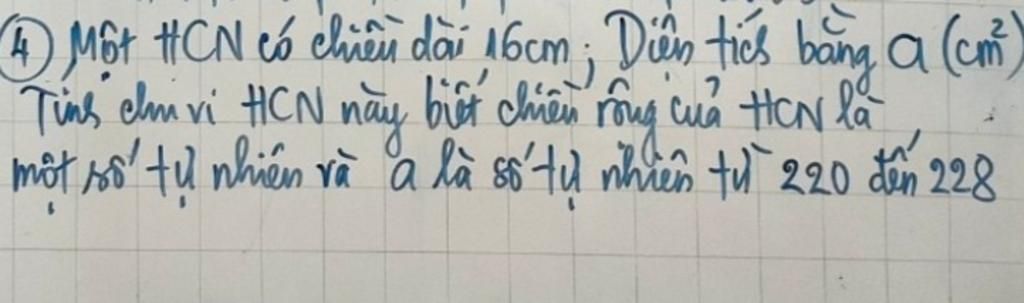 ④ Một HCN có chiều dài 16cm; Diện tích bằng a (cm²)
Tính chu vi HCN này biết chiều rộng của HCN là
một số tự nhiên và a là số tự nhiên từ 220 đến 228